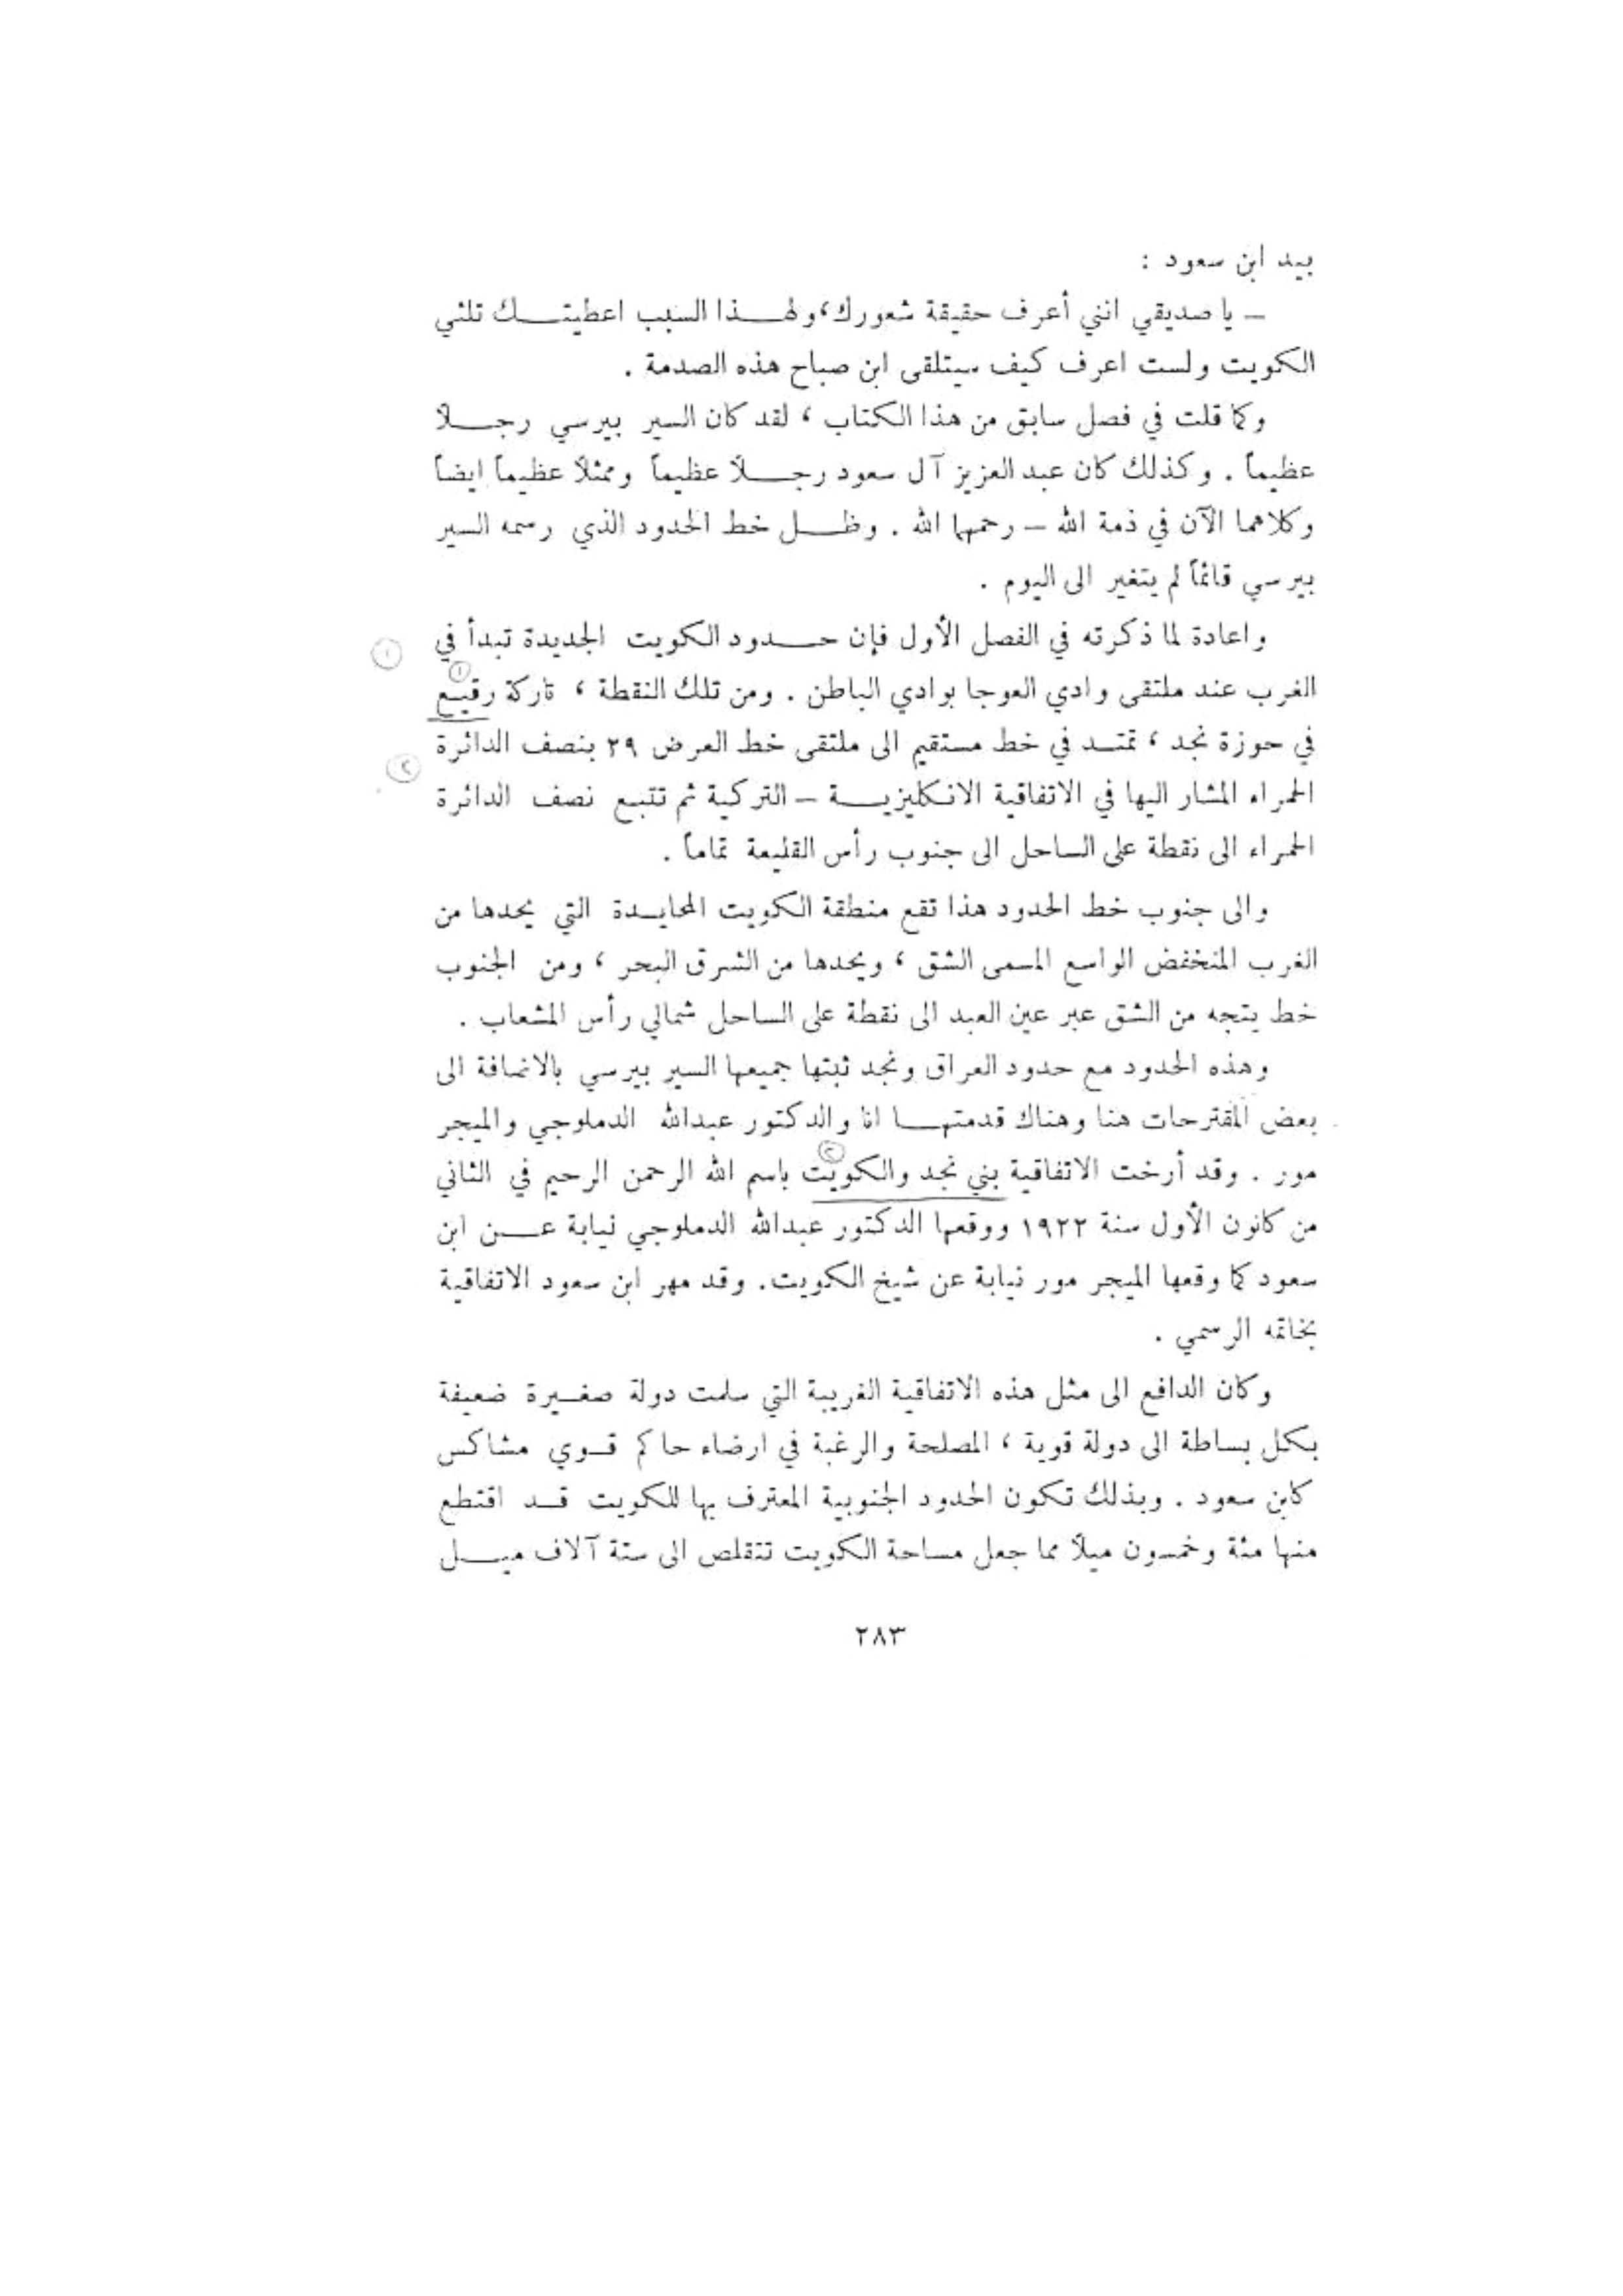 بيد ابن سعود :
– يا صديقي انني أعرف حقيقة شعورك، ولهذا السبب اعطيتك ثلثي
الكويت ولست اعرف كيف سيتلقى ابن صباح هذه الصدمة .
وكما قلت في فصل سابق من هذا الكتاب ، لقد كان السير بيرسي رجلاً
عظيماً . وكذلك كان عبد العزيز آل سعود رجلاً عظيماً وممثلاً عظيماً ايضاً
وكلاهما الآن في ذمة الله – رحمهما الله . وظل خط الحدود الذي رسمه السير
بيرسي قائماً لم يتغير الى اليوم .
واعادة لما ذكرته في الفصل الأول فإن حدود الكويت الجديدة تبدأ في ①
الغرب عند ملتقى وادي العوجا بوادي الباطن . ومن تلك النقطة ، تاركة رقيع ①
في حوزة نجد ، تمتد في خط مستقيم الى ملتقى خط العرض ٢٩ بنصف الدائرة ②
الحمراء المشار اليها في الاتفاقية الانكليزية – التركية ثم تتبع نصف الدائرة
الحمراء الى نقطة على الساحل الى جنوب رأس القليعة تماماً .
والى جنوب خط الحدود هذا تقع منطقة الكويت المحايدة التي يحدها من
الغرب المنخفض الواسع المسمى الشق ، ويحدها من الشرق البحر ، ومن الجنوب
خط يتجه من الشق عبر عين العبد الى نقطة على الساحل شمالي رأس المشعاب .
وهذه الحدود مع حدود العراق ونجد ثبتها جميعها السير بيرسي بالاضافة الى
بعض المقترحات هنا وهناك قدمتها انا والدكتور عبدالله الدملوجي والميجر
مور . وقد أرخت الاتفاقية بني نجد والكويت ② باسم الله الرحمن الرحيم في الثاني
من كانون الأول سنة ١٩٢٢ ووقعها الدكتور عبدالله الدملوجي نيابة عن ابن
سعود كما وقعها الميجر مور نيابة عن شيخ الكويت. وقد مهر ابن سعود الاتفاقية
بخاتمه الرسمي .
وكان الدافع الى مثل هذه الاتفاقية الغريبة التي سلمت دولة صغيرة ضعيفة
بكل بساطة الى دولة قوية ، المصلحة والرغبة في ارضاء حاكم قوي مشاكس
كابن سعود . وبذلك تكون الحدود الجنوبية المعترف بها للكويت قد اقتطع
منها مئة وخمسون ميلاً مما جعل مساحة الكويت تتقلص الى ستة آلاف ميل
٢٨٣